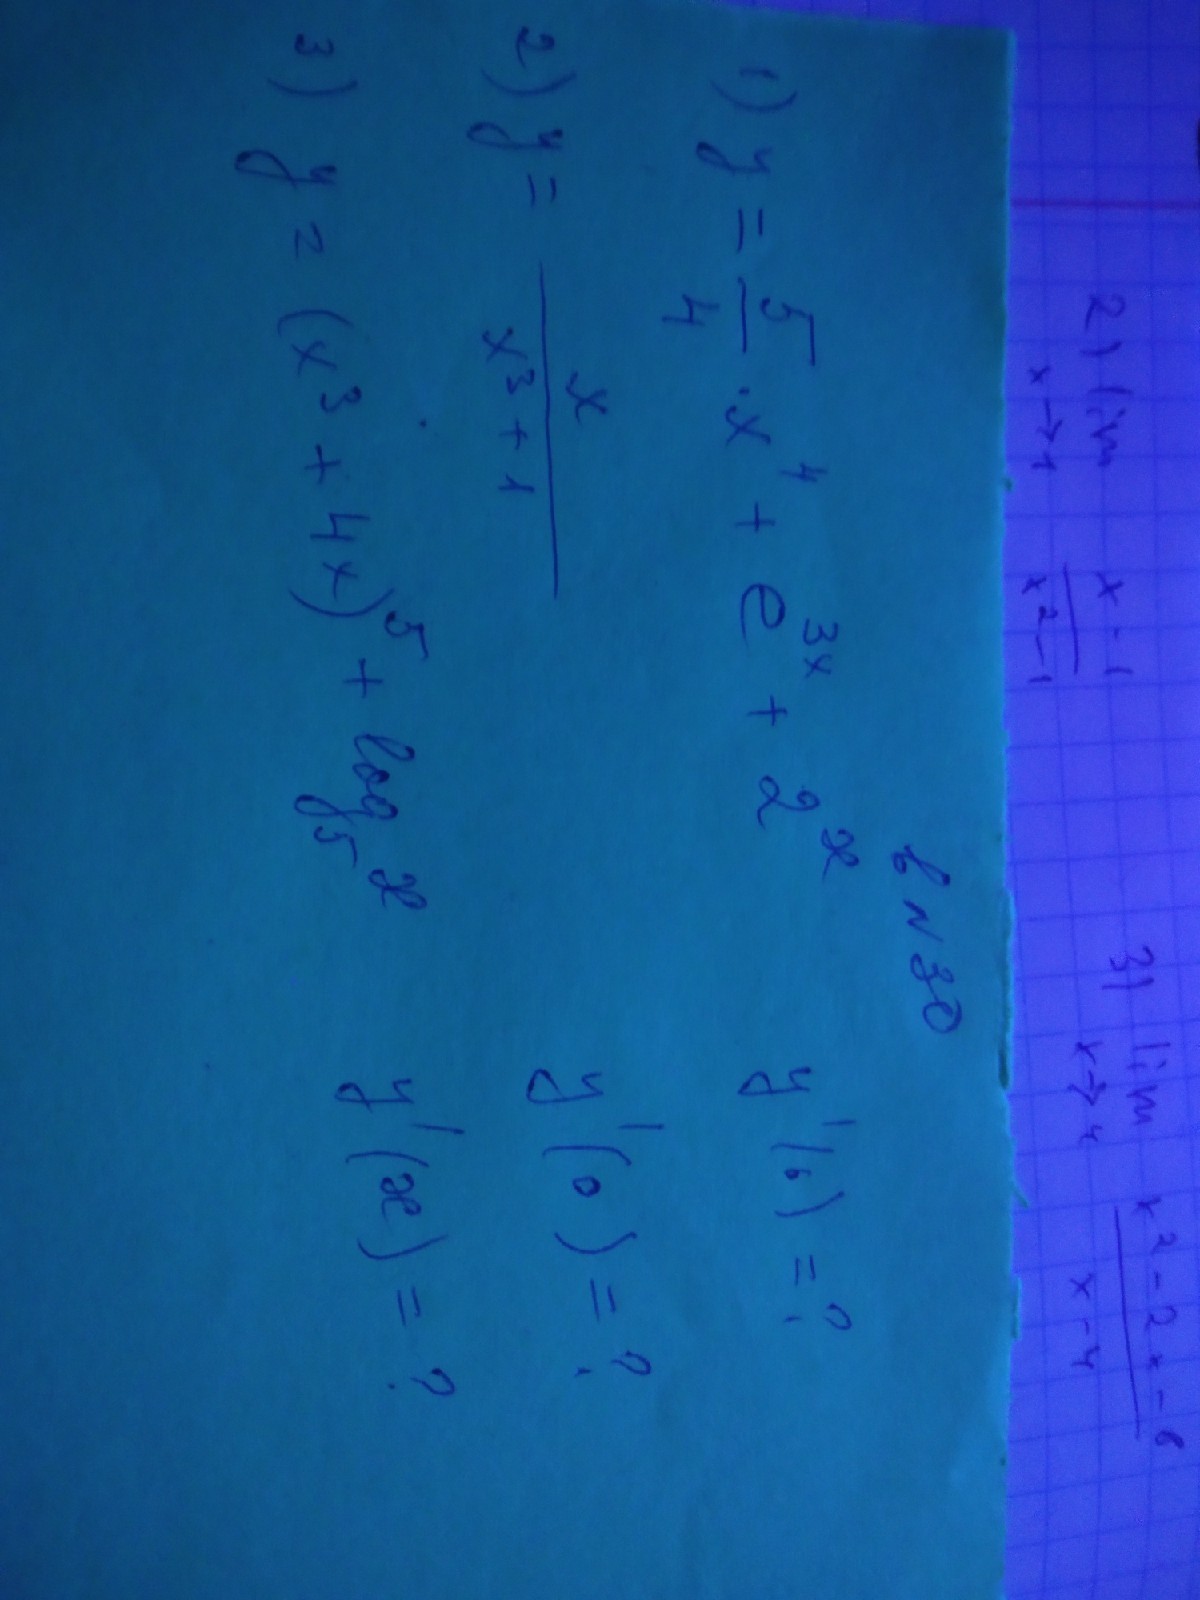 2) lim x→1 (x-1)/(x²-1) 3) lim x→4 (x²-2x-8)/(x-4)
в №30
1) y = 5/4 · x⁴ + e³ˣ + 2ˣ y'(0) = ?
2) y = x/(x³+1) y'(0) = ?
3) y = (x³ + 4x)⁵ + log₅x y'(x) = ?